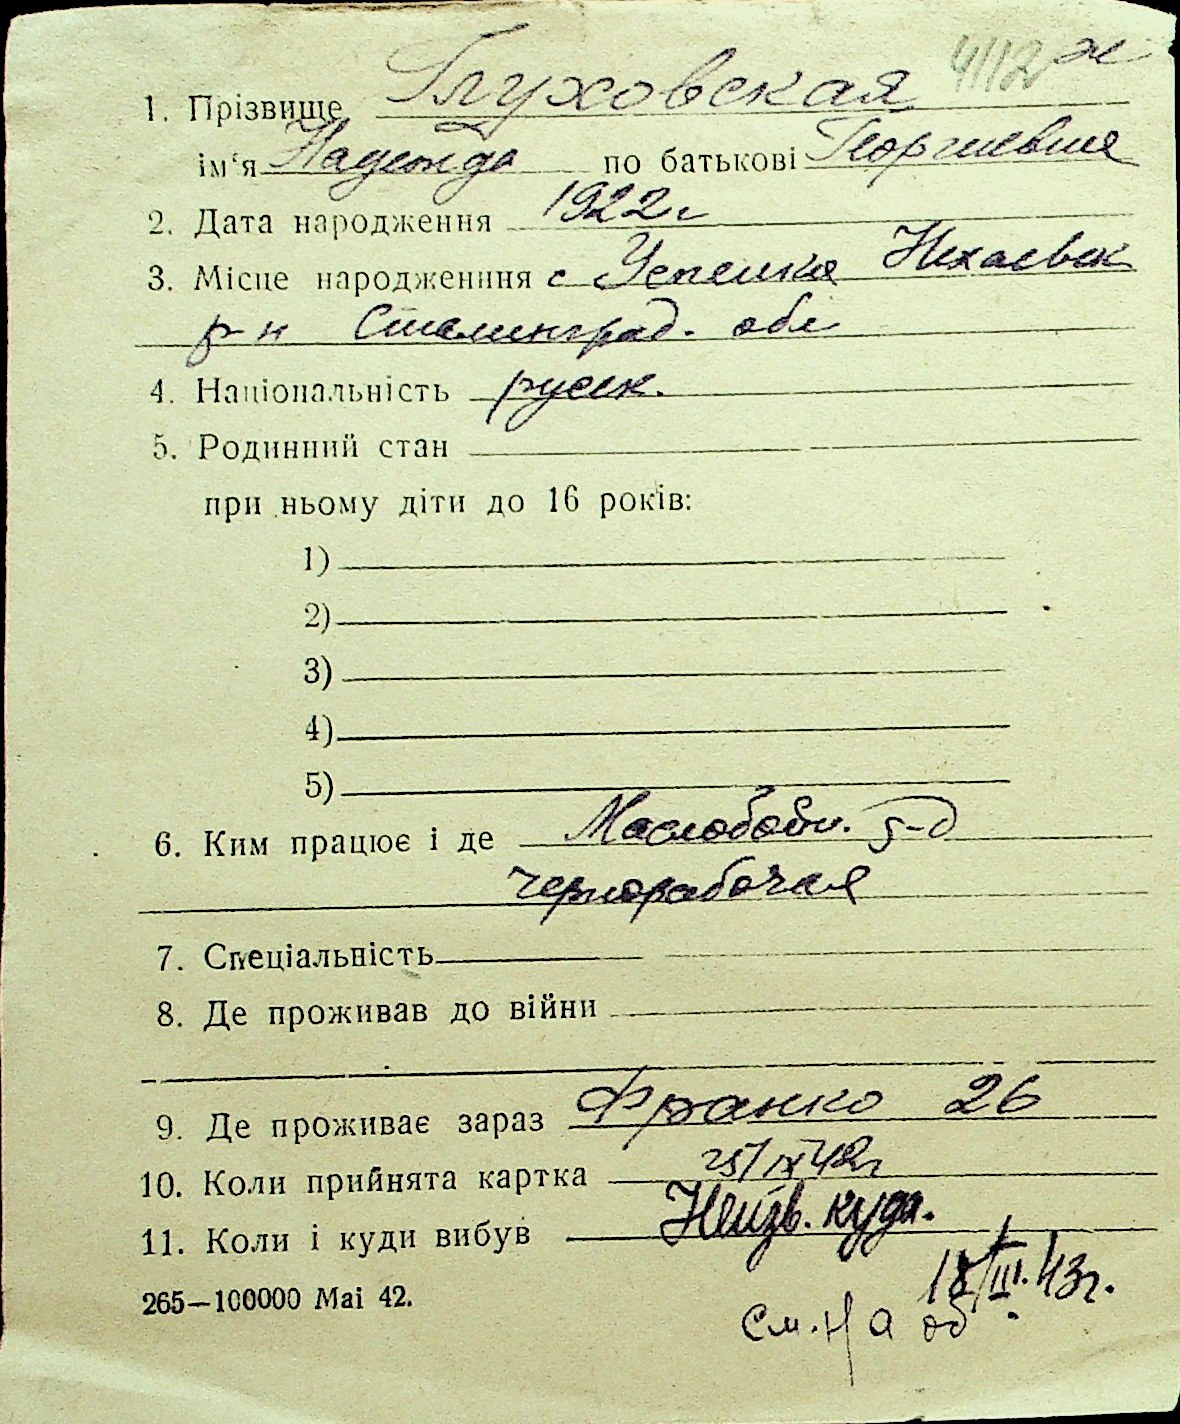 4112 ж
1. Прізвище Глуховская
ім‘я Надежда по батькові Георгиевна
2. Дата народження 1922 г
3. Місце народженння с Успенка Нехаевск
р-н Сталинград. обл
4. Національність русск.
5. Родинний стан
при ньому діти до 16 років:
1)
2)
3)
4)
5)
6. Ким працює і де Маслобойн. з-д
чернорабочая
7. Спеціальність
8. Де проживав до війни
9. Де проживає зараз Франко 26
10. Коли прийнята картка 25/IX 42 г
11. Коли і куди вибув Неизв. куда.
18/III. 43 г.
265—100000 Mai 42.
См. на об.